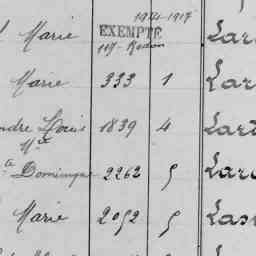 Marie EXEMPTÉ 1914-1917
Marie 333 1 Lar
ndre Louis 1839 4 Lart
Domingue 2262 5 Lar
Marie 2092 5 Las